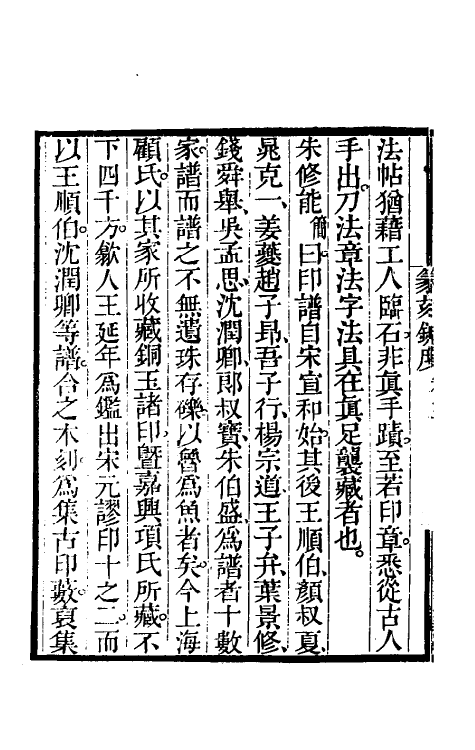 篆刻鍼度
法帖猶藉工人臨石非眞手蹟至若印章悉從古人
手出刀法章法字法具在眞足襲藏者也
朱修能簡曰印譜自宋宣和始其後王順伯顏叔夏
晁克一姜夔趙子昻吾子行楊宗道王子弁葉景修
錢舜舉吳孟思沈潤卿郎叔寶朱伯盛爲譜者十數
家譜而譜之不無遺珠存礫以魯爲魚者矣今上海
顧氏以其家所收藏銅玉諸印曁嘉興項氏所藏不
下四千方歙人王延年爲鑑出宋元謬印十之二而
以王順伯沈潤卿等譜合之木刻爲集古印藪裒集